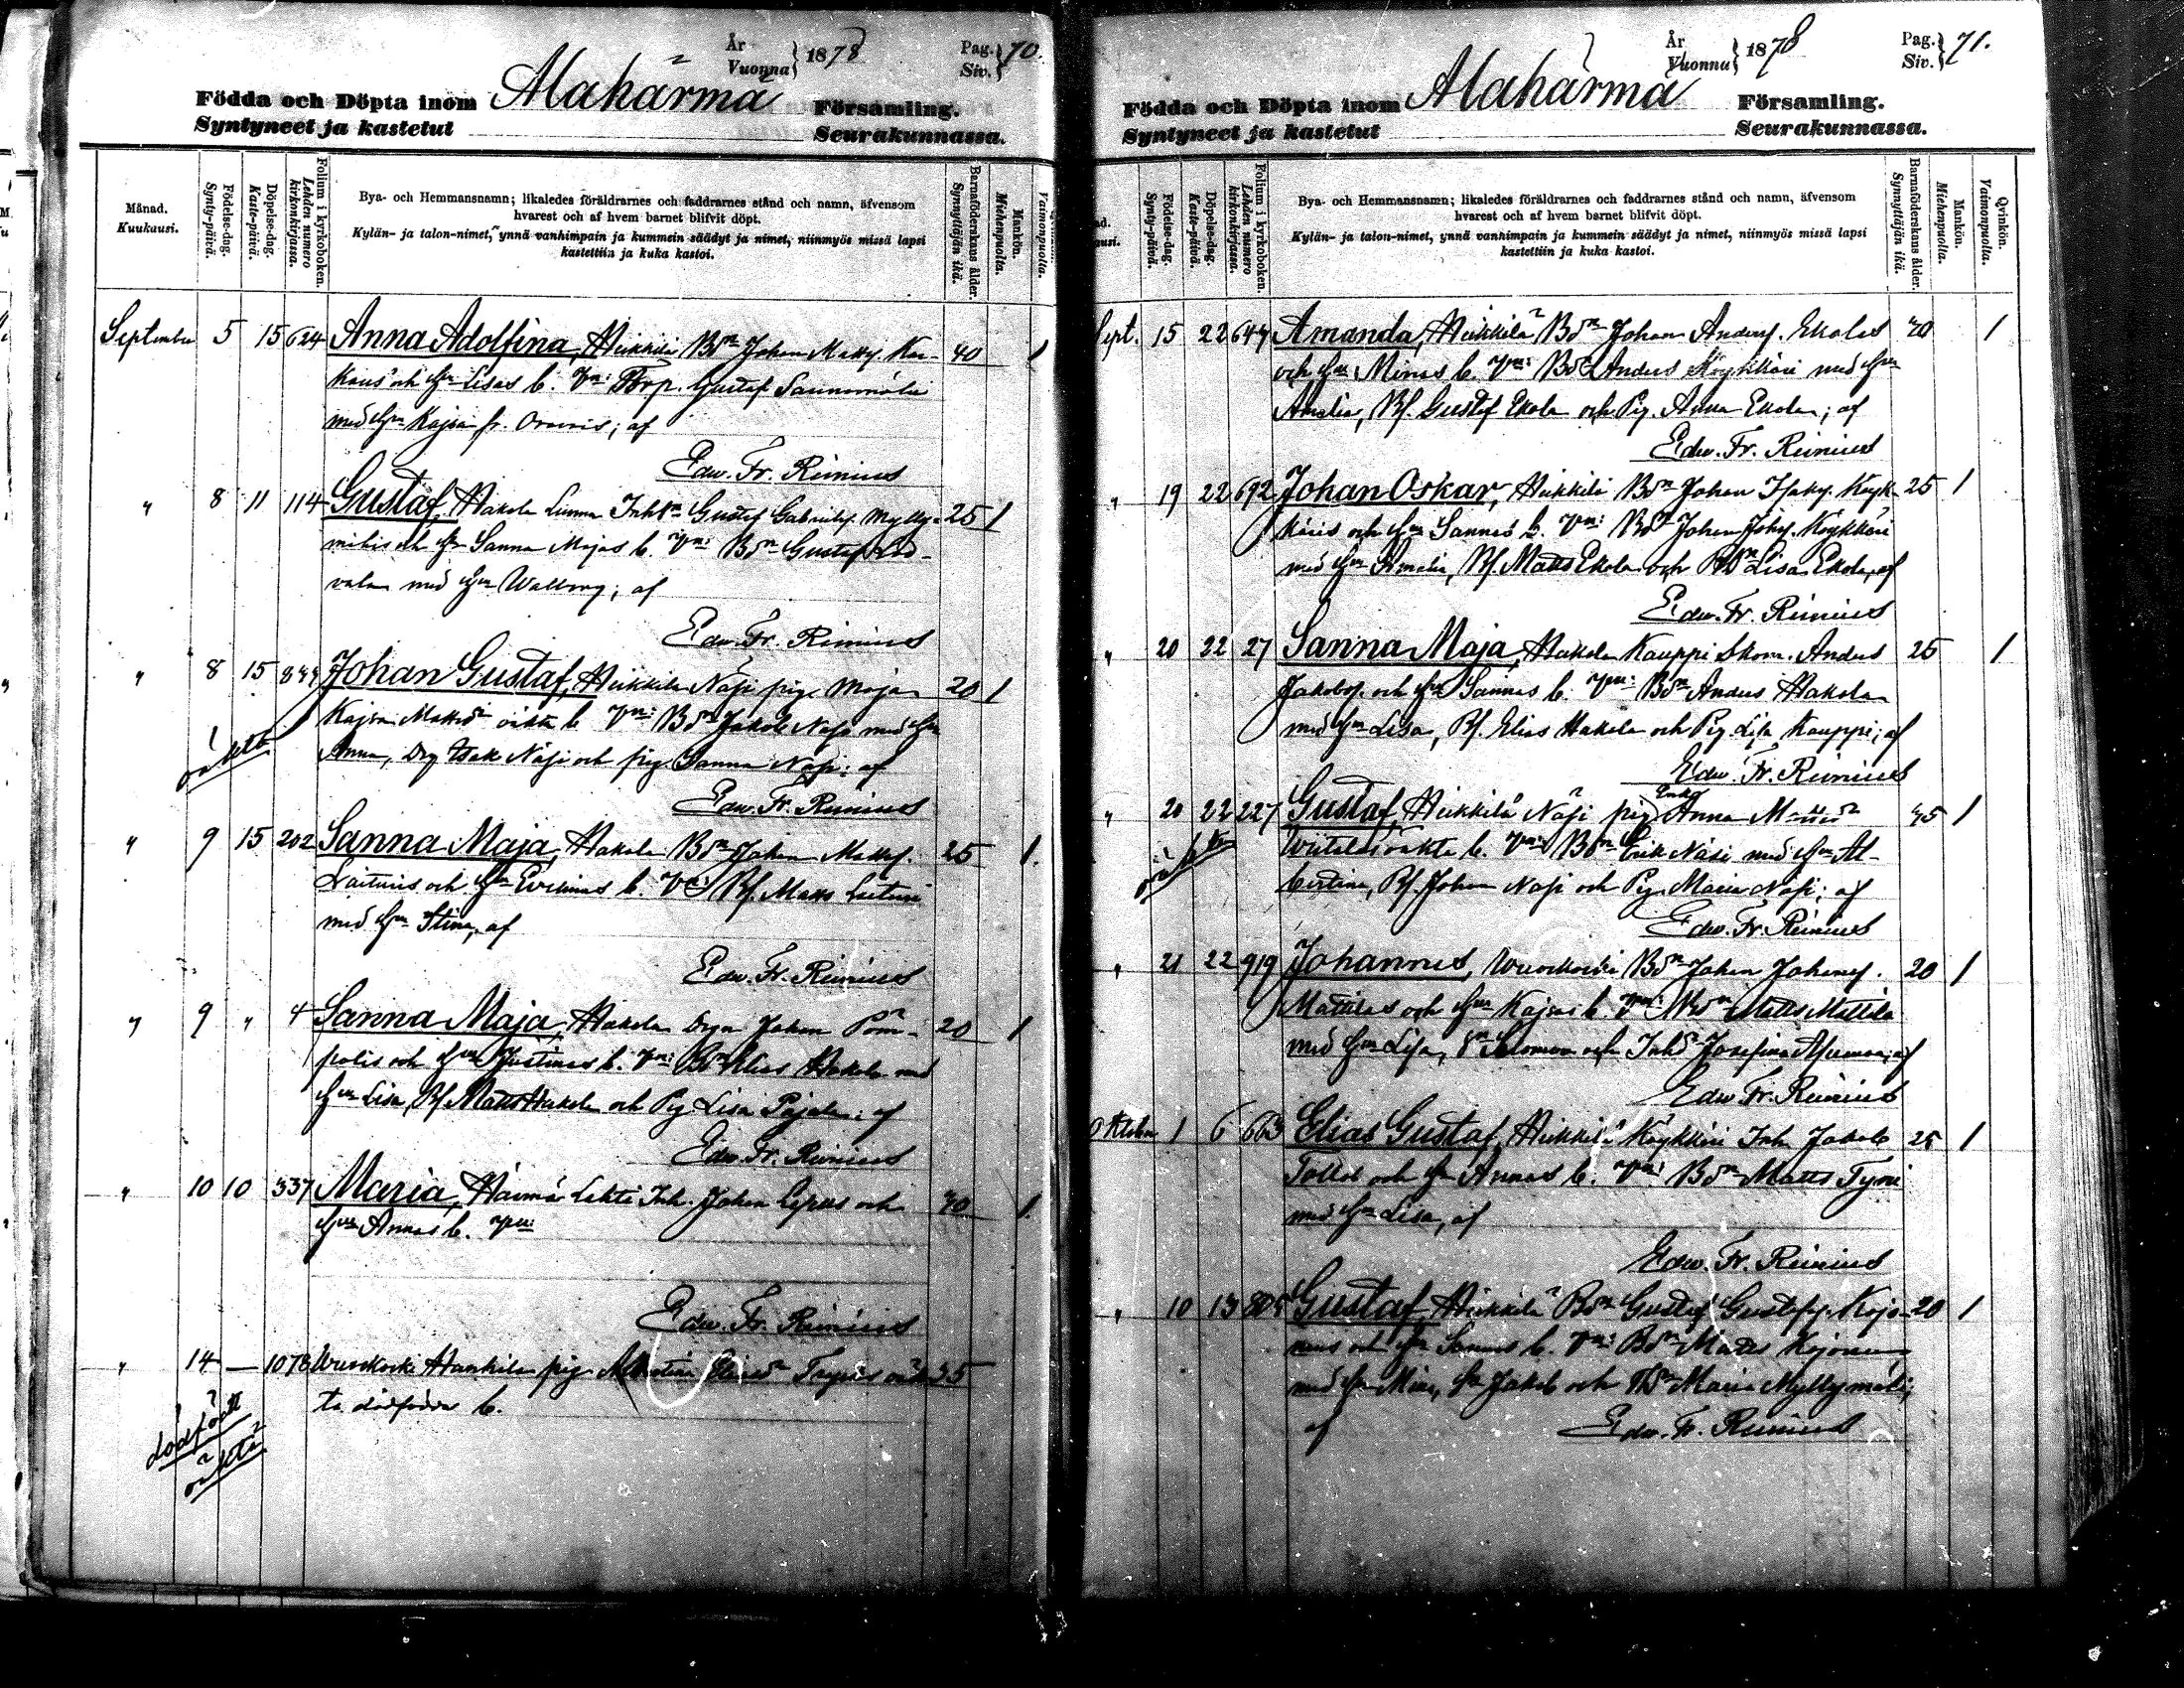 År
Vuonna } 1878
Pag.
Siv. } 70.
Födda och Döpta inom Alahärmä Församling.
Syntyneet ja kastetut Seurakunnassa.
Månad.
Kuukausi.
Födelse-dag.
Synty-päivä.
Döpelse-dag.
Kaste-päivä.
Folium i kyrkoboken.
Lehden numero kirkonkirjassa.
Bya- och Hemmansnamn; likaledes föräldrarnes och faddrarnes stånd och namn, äfvensom
hvarest och af hvem barnet blifvit döpt.
Kylän- ja talon-nimet, ynnä vanhimpain ja kummein säädyt ja nimet, niinmyös missä lapsi
kastettiin ja kuka kastoi.
Barnaföderskans ålder.
Synnyttäjän ikä.
Mankön.
Miehenpuolta.
Vaimonpuolta.
September 5 15 624 Anna Adolfina, Heikkilä Bdn Johan Matts. 40 1
och hu Lisas b. Vn: Torp. Gustaf
med hu Kajsa fr. Oravais; af
Edw. Fr. Reinius
" 8 11 114 Gustaf, Hakola Luoma Gustaf Gabriels. Mylly- 25 1
och hu Sanna Majas b. Vn: Bdn Gustaf
med hu Walborg; af
Edw. Fr. Reinius
" 8 15 Johan Gustaf, Heikkilä Näsi pig. Maja 20 1
Kajsa oäkta b. Vn: Bdn Jakob Näsi med hu
Anna, Drg Isak Näsi och pig Sanna Näsi; af
oäkta
Edw. Fr. Reinius
" 9 15 202 Sanna Maja, Hakola Bdn Johan Matts. 25 1.
och hu Evelinas b. Vn: Bs. Matts
med hu Stina, af
Edw. Fr. Reinius
" 9 " 4 Sanna Maja, Hakola Johan Pom- 20 1
polis och hu Justinas b. Vn: Bdn Elias Hakola med
hu Lisa, Bs Matts Hakola och Pig Lisa; af
Edw. Fr. Reinius
" 10 10 337 Maria, Härmä Lahti Inh. Johan och 40 1.
hu Annas b. Vn:
Edw. Fr. Reinius
" 14 — 1078 Wuoskoski Hanhila pig oäk- 35
ta dödfödda b.
dödfödt
oäkta
År
Vuonna } 1878
Pag.
Siv. } 71.
Födda och Döpta inom Alahärmä Församling.
Syntyneet ja kastetut Seurakunnassa.
Födelse-dag.
Synty-päivä.
Döpelse-dag.
Kaste-päivä.
Folium i kyrkoboken.
Lehden numero kirkonkirjassa.
Bya- och Hemmansnamn; likaledes föräldrarnes och faddrarnes stånd och namn, äfvensom
hvarest och af hvem barnet blifvit döpt.
Kylän- ja talon-nimet, ynnä vanhimpain ja kummein säädyt ja nimet, niinmyös missä lapsi
kastettiin ja kuka kastoi.
Barnaföderskans ålder.
Synnyttäjän ikä.
Mankön.
Miehenpuolta.
Qvinkön.
Vaimonpuolta.
Sept. 15 22 647 Amanda, Heikkilä Bdn Johan Anders. Ekolas 1
och hu Minas b. Vn: Bdn Anders Köykkäri med hu
Amalia, Bs. Gustaf Ekola och Pig. Anna Ekola; af
Edw. Fr. Reinius
" 19 22 692 Johan Oskar, Heikkilä Bdn Johan Isaks. Köyk- 25 1
käris och hu Sannas b. Vn: Bdn Johan Johs. Köykkäri
med hu Amalia, Bs. Matts Ekola och Lisa Ekola, af
Edw. Fr. Reinius
" 20 22 27 Sanna Maja, Hakola Kauppi Skom. Anders 25 1
Jakobs. och hu Sannas b. Vn: Bdn Anders Hakola
med hu Lisa, Bs. Elias Hakola och Pig Lisa Kauppi; af
Edw. Fr. Reinius
" 20 22 227 Gustaf, Heikkilä Näsi Enk. Anna 45 1
oäkta b. Vn: Bdn Erik Näsi med hu Al-
bertina, Bs. Johan Näsi och Pig. Maria Näsi; af
oäkta
Edw. Fr. Reinius
" 21 22 919 Johannes, Wuoskoski Bdn Johan Johans. 20 1
Mattilas och hu Kajsas b. Vn: Bdn Matts Mattila
med hu Lisa, Salomon och Josefina; af
Edw. Fr. Reinius
Oktober 1 6 663 Elias Gustaf, Heikkilä Köykkäri Inh Jakob 25 1
och hu Annas b. Vn: Bdn Matts Tyni
med hu Lisa, af
Edw. Fr. Reinius
" 10 13 805 Gustaf, Heikkilä Bdn Gustaf Gustafs. Kojo- 20 1
nens och hu Sannas b. Vn: Bdn Matts Kojonen
med hu Mina, Jakob och Maria Myllymäki;
af Edw. Fr. Reinius